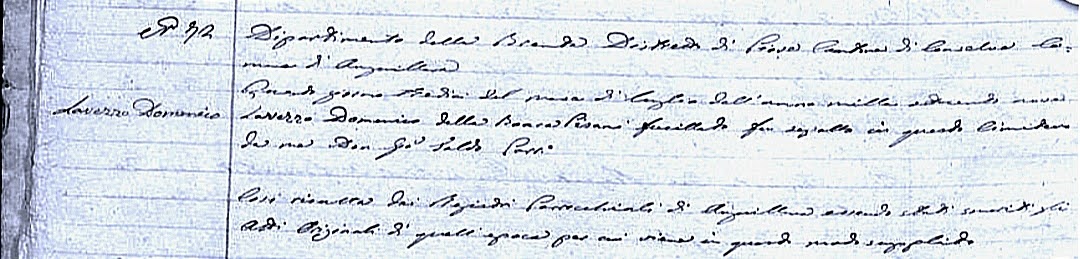 N° 72
Dipartimento della Brenta Distretto di Piove Cantone di Conselve Co=
mune di Anguillara
Lavezzo Domenico
Questo giorno tredici del mese di luglio dell'anno mille ottocento nove
Lavezzo Domenico della Boara Pisani fucillato fu sepolto in questo Cimitero
da me Don Gio Parro
Così risulta dai Registri Parrocchiali di Anguillara essendo stati smarriti gli
Atti Originali di quell'epoca per cui viene in questo modo supplito